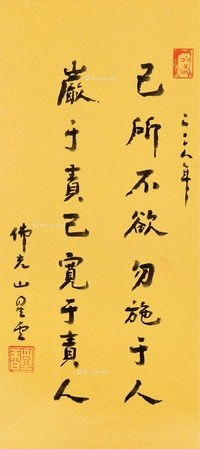 二〇〇八年
己所不欲勿施于人
嚴于責己寬于責人
佛光山星雲